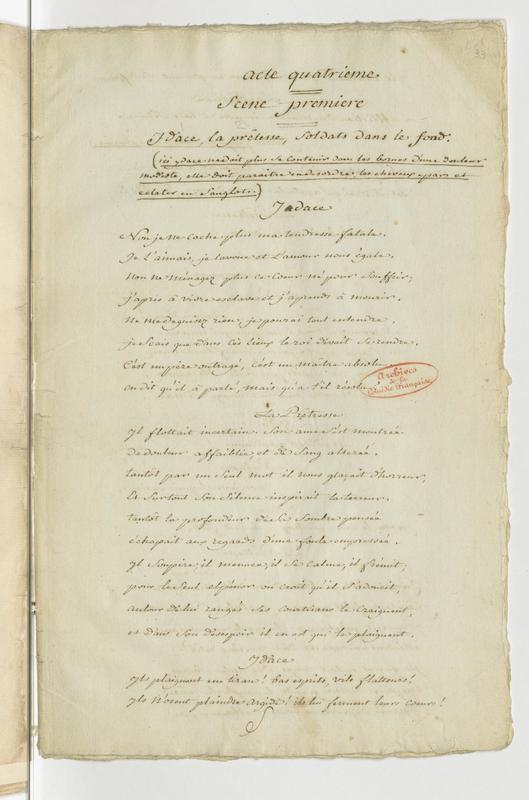 33
acte quatrieme.
Scene premiere
Ydace, la prêtesse, Soldats dans le fond.
(ici ydace ne doit plus se Contenir dans les bornes d'une douleur
modeste, elle doit paraitre en desordre les cheveux epars et
eclater en Sanglots.)
Ydace
Non je ne cache plus ma tendresse fatale.
Je L'aimais, je lavoue et L'amour nous égale.
Non ne ménagez plus ce Coeur né pour Souffrir,
j'apris à vivre esclave et j'aprends à mourir.
Ne me deguisez rien, je pourai tout entendre.
je Scais que dans Ces Lieux le roi devait Se rendre.
C'est un pere outragé, C'est un maître absolu
on dit qu'il à parlé, mais qu'a t'il résolu?
Archives
de la
Comédie Française
La Prêtresse
Yl flottait incertain. Son ame s'est montrée
de douleur affaiblie, et de Sang alterée.
tantôt par un Seul mot il nous glaçait d'horreur,
Et Surtout Son Silence inspirait la terreur.
tantôt la profondeur de Sa Sombre pensée
échapait aux regards d'une foule empressée.
Yl Soupire, il menace, il Se Calme, il frémit;
pour le Seul on croit qu'il S'adoucit,
autour de lui rangés Ses Courtisans le Craignent,
et dans Son desespoir il en est qui le plaignent.
Ydace
Yls plaignent un tiran! bas esprits, vils flatteurs!
Yls n'osent plaindre argide! ils lui ferment leurs coeurs!